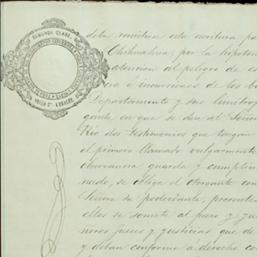 SEGUNDA CLASE
deba remitirse esta escritura pa
Chihuahua, por la hipoteca
atencion al peligro de
cia é incursiones de los b
Departamento y sus limitrof
gante en que se den al Señor
Rio dos testimonios que tengan
el primero llamado vulgarmente
observancia guarda y cumplim
nido, se obliga el otorgante con
Señora su poderdante, presentes
ellos se somete al fuero y ju
nores jueces y justicias que de
y deban conforme á derecho co